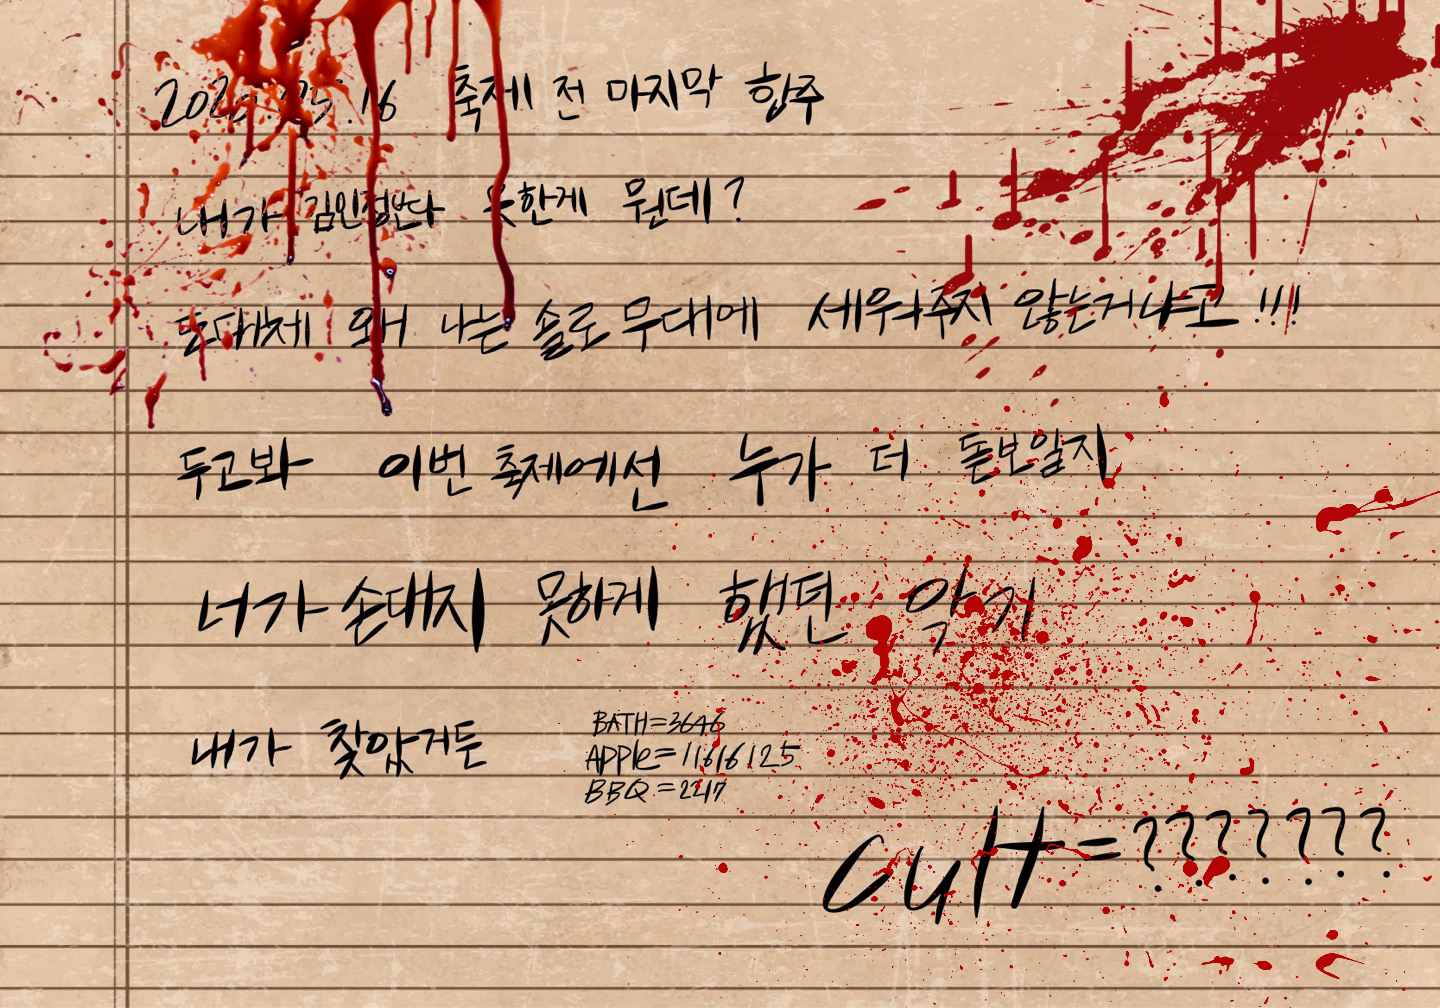 2026.05.16 축제 전 마지막 합주
내가 김민정보다 못한게 뭔데?
도대체 왜 나는 솔로무대에 세워주지 않는거냐고!!!
두고봐 이번 축제에선 누가 더 돋보일지
너가 손대지 못하게 했던 악기
내가 찾았거든
BATH=3646
APPle=11616125
BBQ=2217
cult=???????